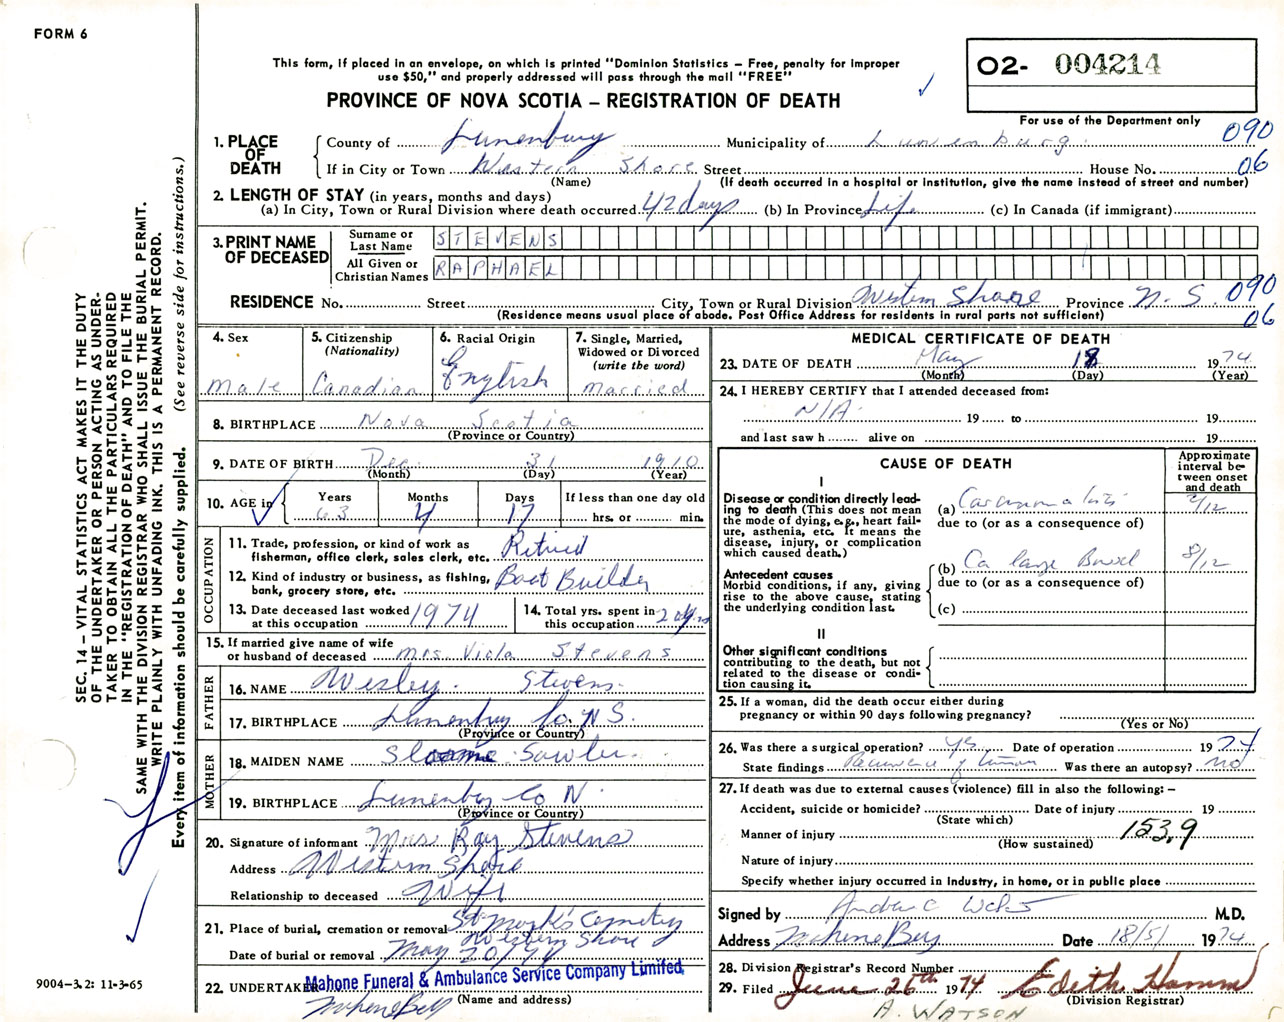 FORM 6
This form, if placed in an envelope, on which is printed "Dominion Statistics – Free, penalty for improper
use $50," and properly addressed will pass through the mail "FREE"
PROVINCE OF NOVA SCOTIA – REGISTRATION OF DEATH
O2- 004214
For use of the Department only
1. PLACE OF DEATH
County of Lunenburg Municipality of Lunenburg 090
If in City or Town Western Shore Street House No. 06
(Name) (If death occurred in a hospital or institution, give the name instead of street and number)
2. LENGTH OF STAY (in years, months and days)
(a) In City, Town or Rural Division where death occurred 42 days (b) In Province Life (c) In Canada (if immigrant)
3. PRINT NAME OF DECEASED
Surname or Last Name STEVENS
All Given or Christian Names RAPHAEL
RESIDENCE No. Street City, Town or Rural Division Western Shore Province N.S. 090
(Residence means usual place of abode. Post Office Address for residents in rural parts not sufficient) 06
4. Sex
Male
5. Citizenship
(Nationality)
Canadian
6. Racial Origin
English
7. Single, Married,
Widowed or Divorced
(write the word)
Married
8. BIRTHPLACE Nova Scotia
(Province or Country)
9. DATE OF BIRTH Dec 31 1910
(Month) (Day) (Year)
10. AGE in
Years Months Days If less than one day old
63 4 17 hrs. or min.
OCCUPATION
11. Trade, profession, or kind of work as
fisherman, office clerk, sales clerk, etc. Retired
12. Kind of industry or business, as fishing,
bank, grocery store, etc. Boat Builder
13. Date deceased last worked
at this occupation 1974
14. Total yrs. spent in
this occupation
15. If married give name of wife
or husband of deceased Mrs. Viola Stevens
FATHER
16. NAME Wesley Stevens
17. BIRTHPLACE Lunenburg Co. N.S.
(Province or Country)
MOTHER
18. MAIDEN NAME Sawler
19. BIRTHPLACE Lunenburg Co N
(Province or Country)
20. Signature of informant Mrs Ray Stevens
Address Western Shore
Relationship to deceased Wife
21. Place of burial, cremation or removal St Mark's Cemetery
Western Shore
Date of burial or removal May 20/74
22. UNDERTAKER Mahone Funeral & Ambulance Service Company Limited,
(Name and address)
Mahone Bay
MEDICAL CERTIFICATE OF DEATH
23. DATE OF DEATH May 18 1974
(Month) (Day) (Year)
24. I HEREBY CERTIFY that I attended deceased from:
N/A 19 to 19
and last saw h alive on 19
CAUSE OF DEATH
Approximate
interval be-
tween onset
and death
I
Disease or condition directly lead-
ing to death (This does not mean
the mode of dying, e.g., heart fail-
ure, asthenia, etc. It means the
disease, injury, or complication
which caused death.)
(a) Carcinomatosis 2/12
due to (or as a consequence of)
Antecedent causes
Morbid conditions, if any, giving
rise to the above cause, stating
the underlying condition last.
(b) Ca large Bowel 8/12
due to (or as a consequence of)
(c)
II
Other significant conditions
contributing to the death, but not
related to the disease or condi-
tion causing it.
25. If a woman, did the death occur either during
pregnancy or within 90 days following pregnancy?
(Yes or No)
26. Was there a surgical operation? yes Date of operation 1974
State findings Recurrence of tumour Was there an autopsy? no
27. If death was due to external causes (violence) fill in also the following: –
Accident, suicide or homicide? Date of injury 19
(State which)
Manner of injury 153.9
(How sustained)
Nature of injury
Specify whether injury occurred in industry, in home, or in public place
Signed by M.D.
Address Mahone Bay Date 18/5/ 1974
28. Division Registrar's Record Number
29. Filed June 26th 1974 Edith Hamm
(Division Registrar)
A. WATSON
SEC. 14 – VITAL STATISTICS ACT MAKES IT THE DUTY
OF THE UNDERTAKER OR PERSON ACTING AS UNDER-
TAKER TO OBTAIN ALL THE PARTICULARS REQUIRED
IN THE "REGISTRATION OF DEATH" AND TO FILE THE
SAME WITH THE DIVISION REGISTRAR WHO SHALL ISSUE THE BURIAL PERMIT.
WRITE PLAINLY WITH UNFADING INK. THIS IS A PERMANENT RECORD.
Every item of information should be carefully supplied. (See reverse side for instructions.)
9004-3.2: 11-3-65